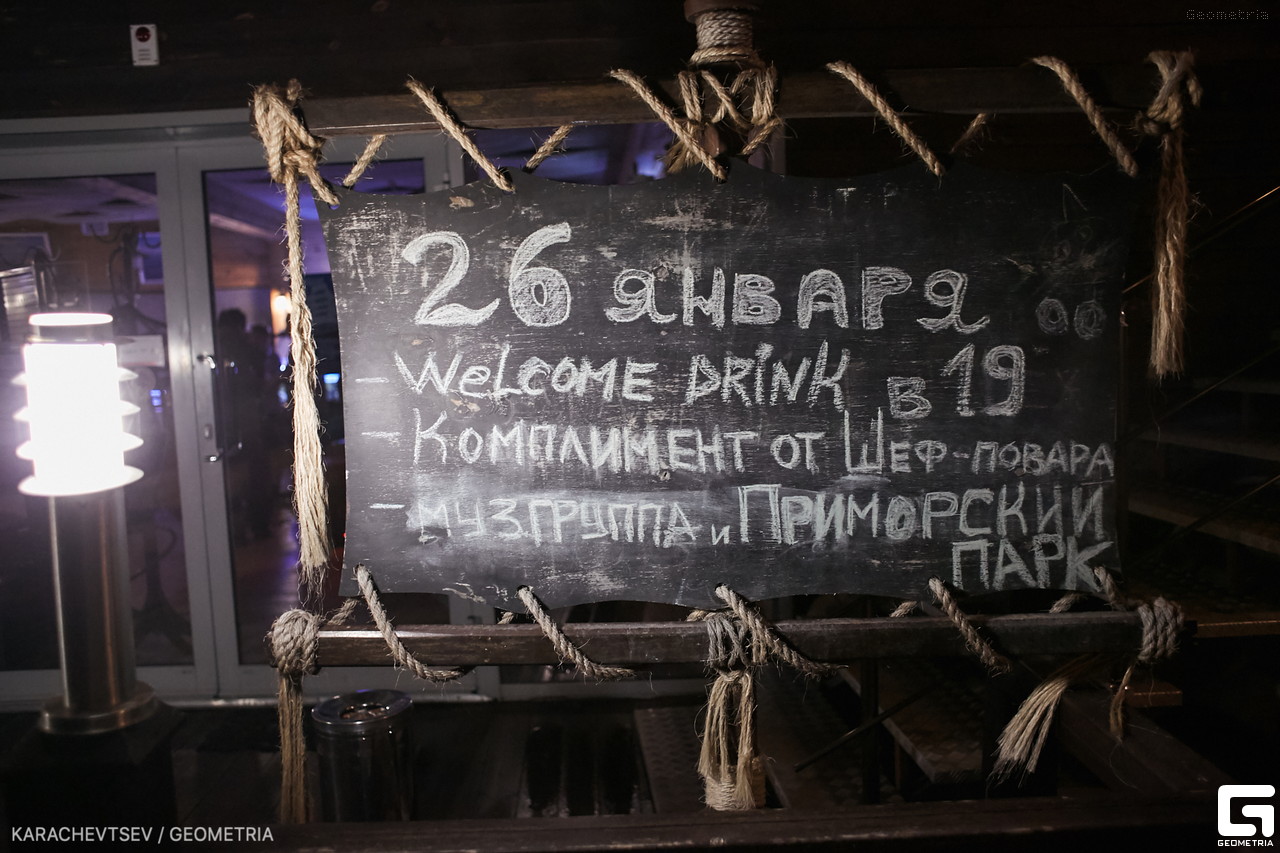 Geometria
26 января
- Welcome DRiNK в 19 00
- Комплимент от Шеф-повара
- муз.группа и Приморский
парк
KARACHEVTSEV / GEOMETRIA
GEOMETRIA